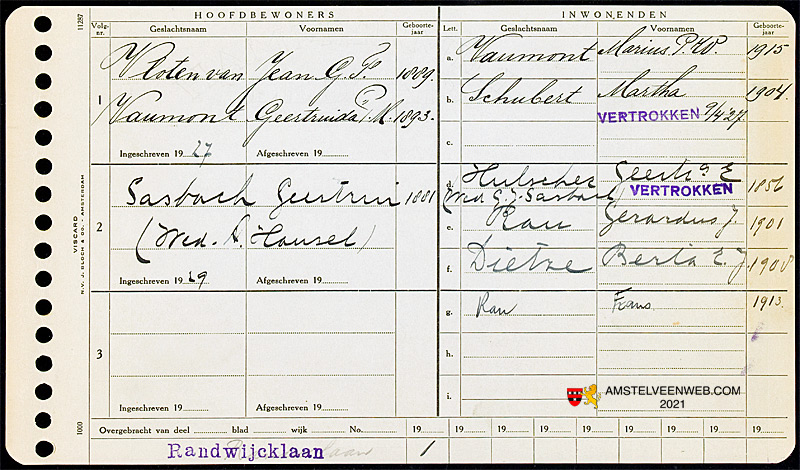 HOOFDBEWONERS
INWONENDEN
11287
Volg-nr.
Geslachtsnaam
Voornamen
Geboorte-jaar
Lett.
Geslachtsnaam
Voornamen
Geboorte-jaar
1
Vloten van Jean G. P. 1889.
Vaumont Geertruida P. M. 1893.
Ingeschreven 19 27 Afgeschreven 19
a. Vaumont Marius P. W. 1915
b. Schubert Martha 1904.
VERTROKKEN 9/4 27.
c.
2
Sasbach 1881
(Wed. A. Hansel)
Ingeschreven 19 29 Afgeschreven 19
d. Hulscher E 1856
(Wed. G. J. Sasbach) VERTROKKEN
e. Rau Gerardus J. 1901
f. Dietze Berta E. J. 1908
3
Ingeschreven 19 Afgeschreven 19
g. Rau Frans 1913.
h.
i.
AMSTELVEENWEB.COM
2021
VISCARD
N.V. J. BLOCH & CO. - AMSTERDAM
1000
Overgebracht van deel blad wijk No. 19 19 19 19 19 19 19 19 19
Randwijcklaan 1